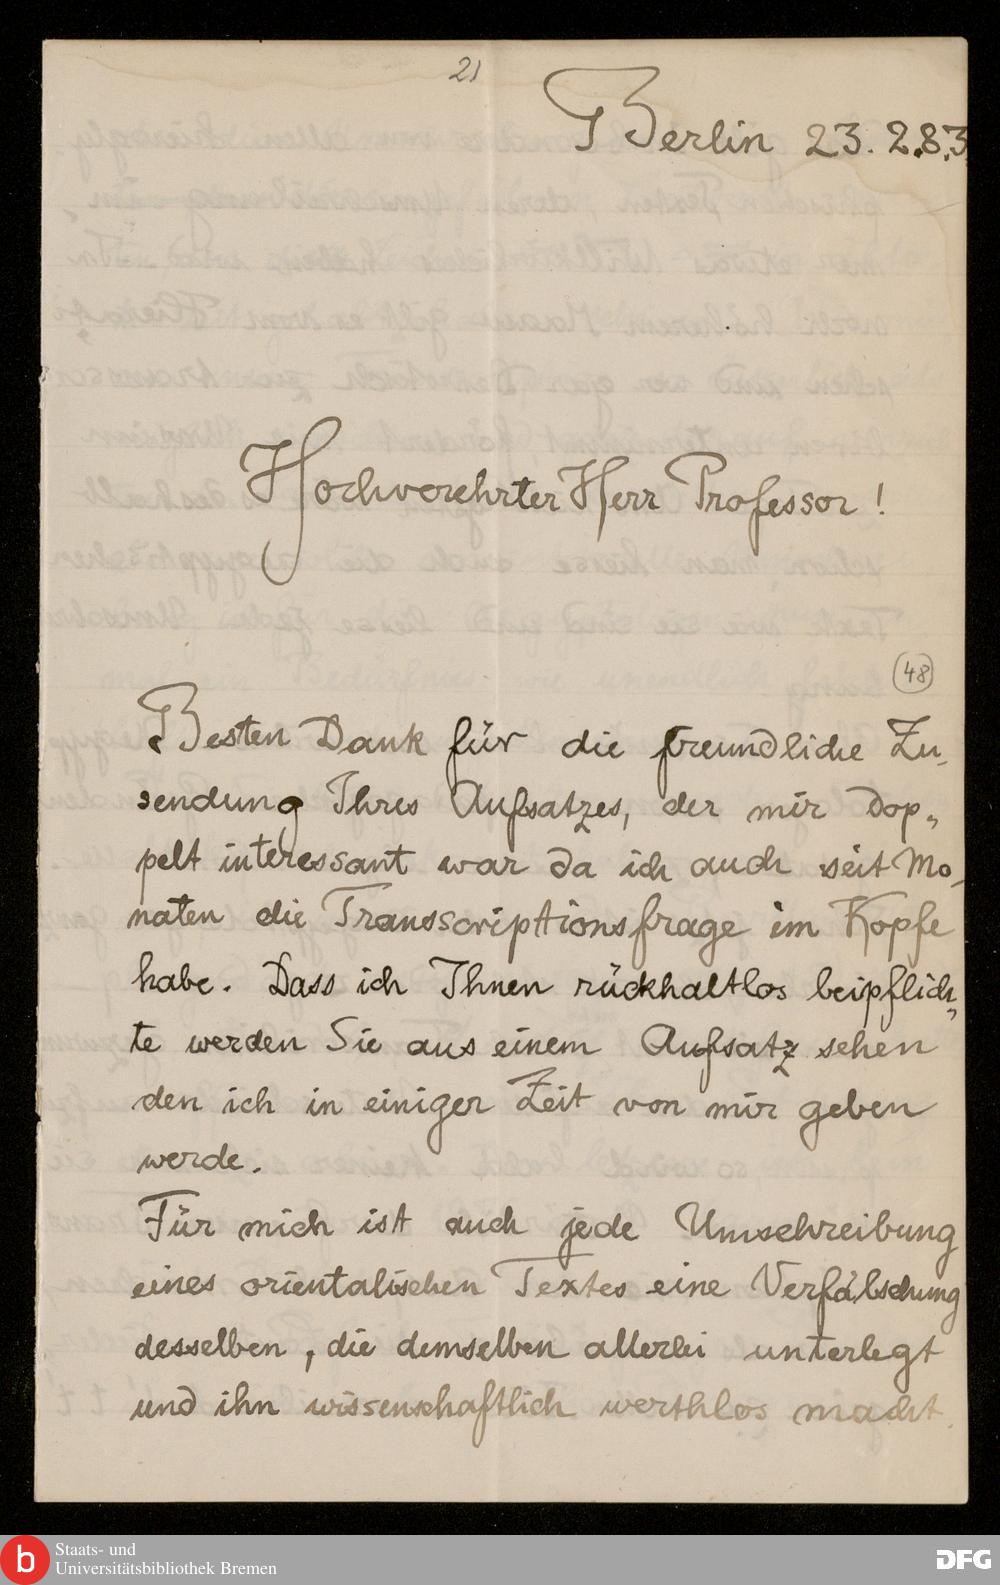 21
Berlin 23.2.83
Hochverehrter Herr Professor!
48
Besten Dank für die freundliche Zu-
sendung Ihres Aufsatzes, der mir dop-
pelt interessant war da ich auch seit Mo-
naten die Transscriptionsfrage im Kopfe
habe. Dass ich Ihnen rückhaltlos beipflich-
te werden Sie aus einem Aufsatz sehen
den ich in einiger Zeit von mir geben
werde.
Für mich ist auch jede Umschreibung
eines orientalischen Textes eine Verfälschung
desselben, die demselben allerlei unterlegt
und ihn wissenschaftlich werthlos macht.
b
Staats- und
Universitätsbibliothek Bremen
DFG